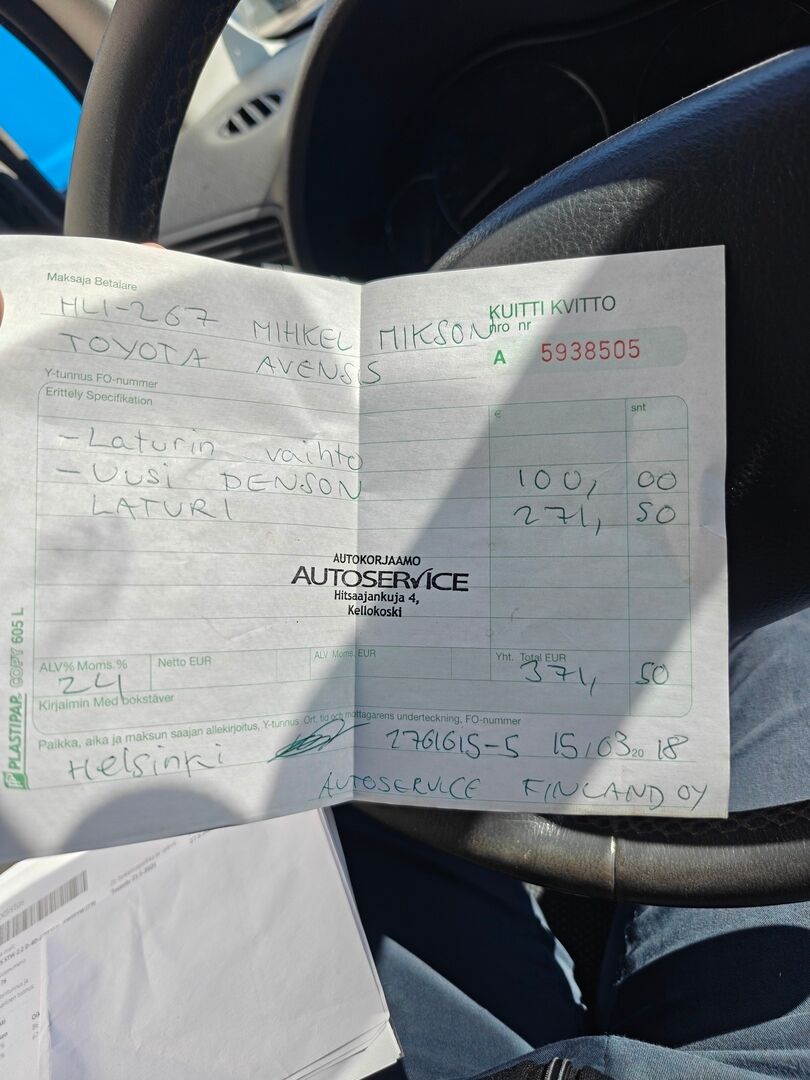 Maksaja Betalare
HLI-267 MIHKEL MIKSON
TOYOTA AVENSIS
KUITTI KVITTO
nro nr
A 5938505
Y-tunnus FO-nummer
Erittely Specifikation
€ snt
-Laturin vaihto
-Uusi DENSON 100, 00
LATURI 271, 50
AUTOKORJAAMO
AUTOSERVICE
Hitsaajankuja 4,
Kellokoski
ALV% Moms.% Netto EUR ALV Moms. EUR Yht. Total EUR
24 371, 50
Kirjaimin Med bokstäver
Paikka, aika ja maksun saajan allekirjoitus, Y-tunnus Ort, tid och mottagarens underteckning, FO-nummer
Helsinki 2761615-5 15,03 20 18
AUTOSERVICE FINLAND OY
PLASTIPAP COPY 605 L